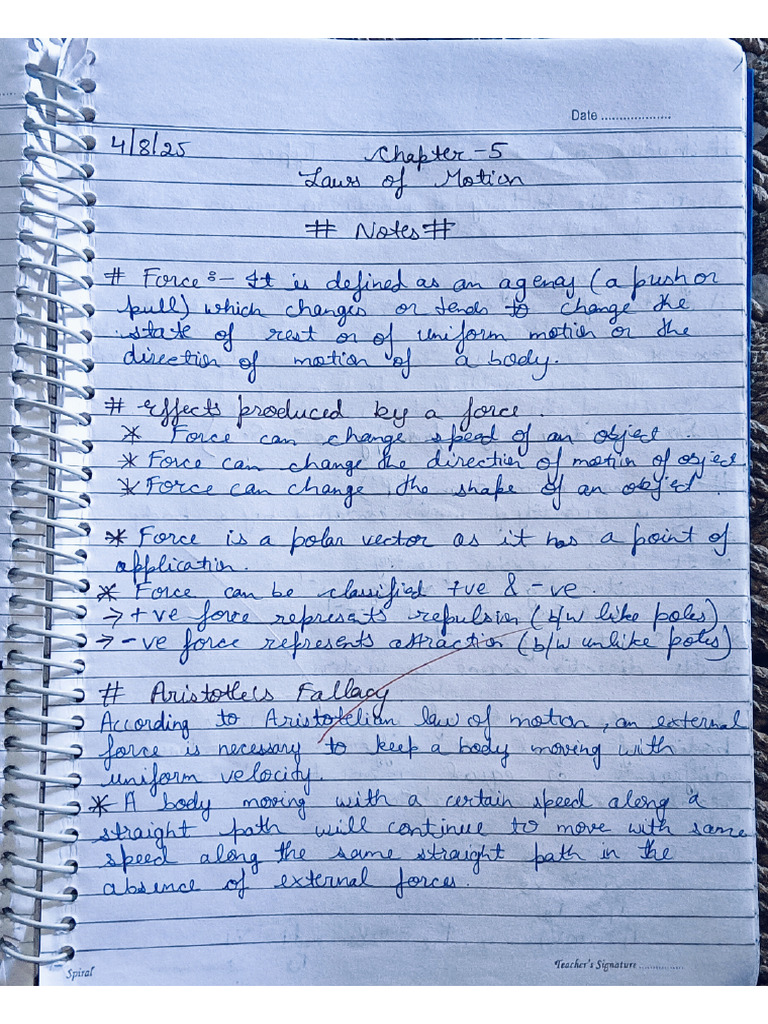 Date ...................
4/8/25 Chapter - 5
Laws of Motion
# Notes #
# Force :- It is defined as an agency (a push or
pull) which changes or tends to change the
state of rest or of uniform motion or the
direction of motion of a body.
# Effects produced by a force.
* Force can change speed of an object.
* Force can change the direction of motion of object.
* Force can change the shape of an object.
* Force is a polar vector as it has a point of
application.
* Force can be classified +ve & -ve.
→ +ve force represents repulsion (b/w like poles)
→ -ve force represents attraction (b/w unlike poles)
# Aristotle's Fallacy
According to Aristotelian law of motion, an external
force is necessary to keep a body moving with
uniform velocity.
* A body moving with a certain speed along a
straight path will continue to move with same
speed along the same straight path in the
absence of external forces.
Spiral Teacher's Signature ...............